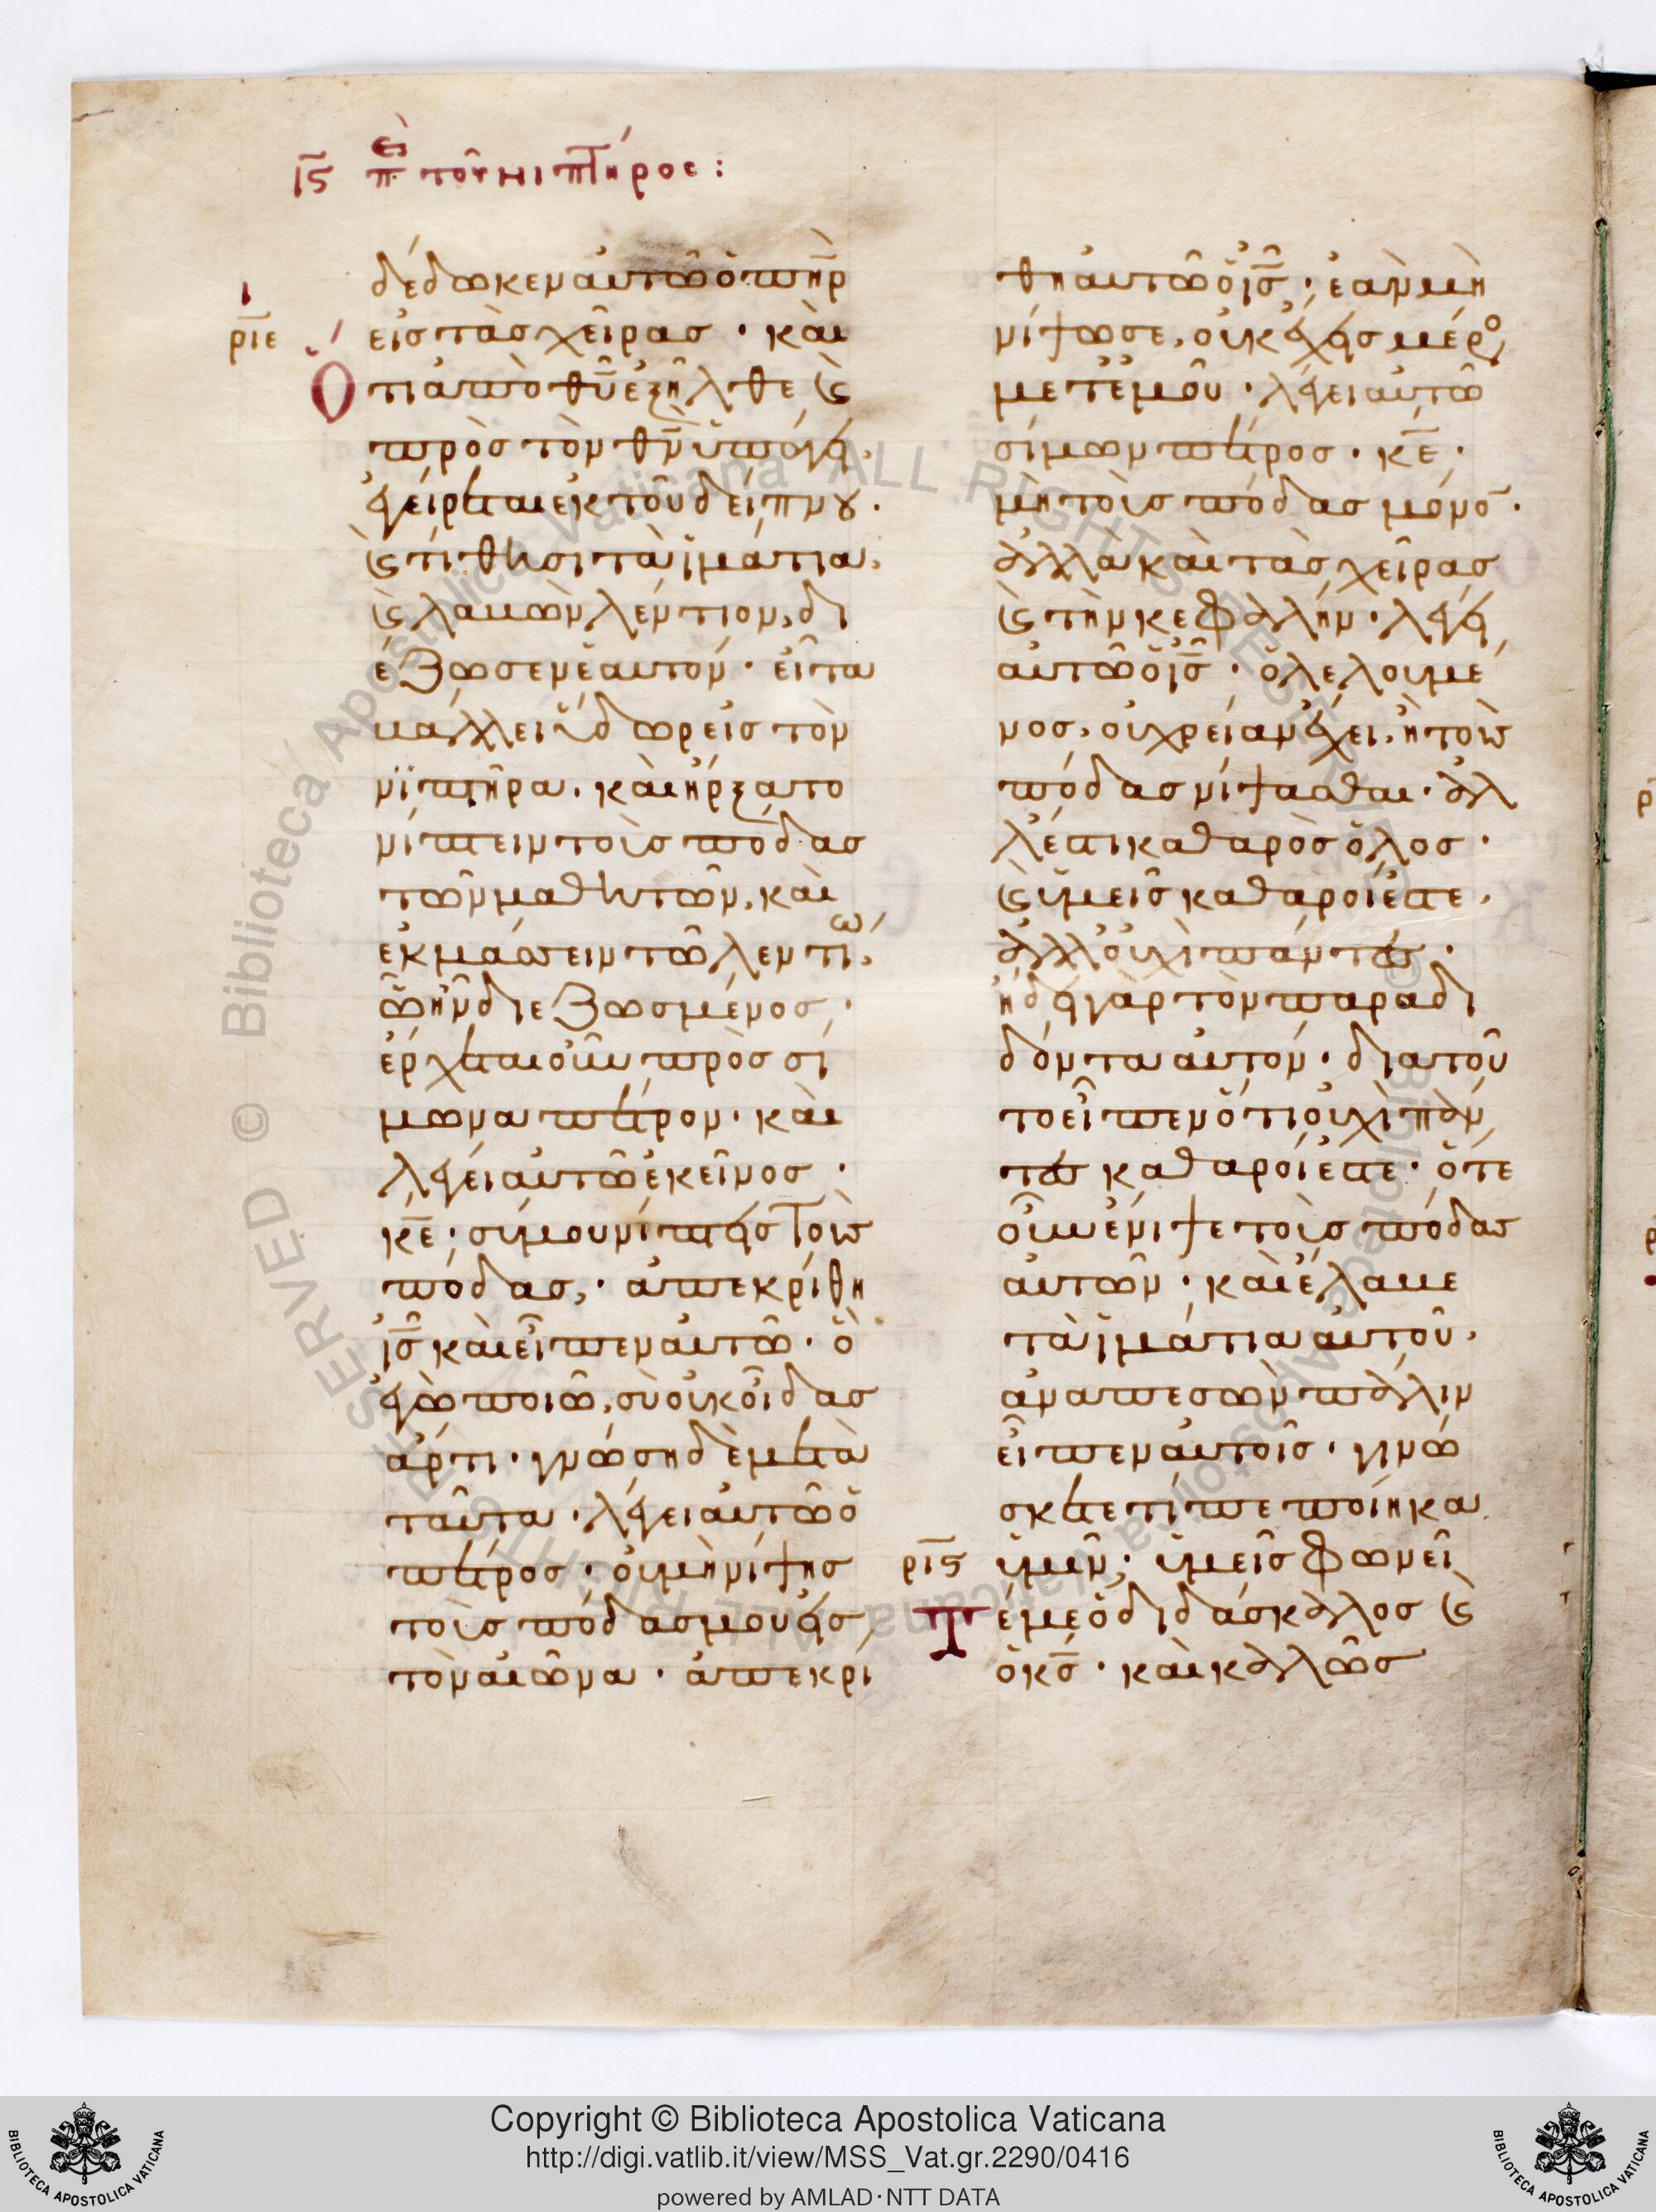 ιϛ πε τοῦ νιπτήρος:
δέδωκεν αὐτῶ ὁ πη̅ρ
ριε
εἰς τὰς χεῖρας · καὶ
Ὅτι ἀπὸ θυ̅ ἐξῆλθε ϗ
πρὸς τὸν θν̅ ὑπάγει,
ἐγείρεται ἐκ τοῦ δείπνου ·
ϗ τίθησι τὰ ἱμάτια,
ϗ λαβὼν λέντιον, δι
έζωσεν ἑαυτόν · εἶτα
βάλλει ὕδωρ εἰς τὸν
νϊπτῆρα · καὶ ἤρξατο
νίπτειν τοὺς πόδας
τῶν μαθητῶν, καὶ
ἐκμάσσειν τῶ λεντίω,
ὧ ἦν διεζωσμένος ·
ἔρχεται οὖν πρὸς σί
μωνα πέτρον · καὶ
λέγει αὐτῶ ἐκεῖνος ·
κε̅ · σύ μου νίπτεις τοὺς
πόδας, · ἀπεκρίθη
ις̅ καὶ εἶπεν αὐτῶ · ὃ
ἐγὼ ποιῶ, σὺ οὐκ οἶδας
ἄρτι · γνώση δὲ μετὰ
ταῦτα · λέγει αὐτῶ ὁ
πέτρος · οὐ μὴ νίψης
τοὺς πόδας μου εἰς
τὸν αἰῶνα · ἀπεκρί
θη αὐτῶ ὁ ις̅ · ἐὰν μὴ
νίψω σε, οὐκ ἔχεις μέρος
μετ' ἐμοῦ · λέγει αὐτῶ
σίμων πέτρος · κε̅ ·
μὴ τοὺς πόδας μόνο̅ ·
ἀλλὰ καὶ τὰς χεῖρας
ϗ τὴν κεφαλήν · λέγει
αὐτῶ ὁ ις̅ · ὁ λελουμέ
νος, οὐ χρείαν ἔχει, ἢ τοὺς
πόδας νίψασθαι · ἀλ
λ' ἔστι καθαρὸς ὅλος ·
ϗ ὑμεῖς καθαροί ἐστε,
ἀλλ' οὐχὶ πάντες ·
ἤδει γὰρ τὸν παραδι
δόντα αὐτόν · διὰ τοῦ
το εἶπεν ὅτι οὐχὶ πάν
τες καθαροί ἐστε · ὅτε
οὖν ἔνιψε τοὺς πόδας
αὐτῶν · καὶ ἔλαβε
τὰ ἱμάτια αὐτοῦ,
ἀναπεσὼν πάλιν
εἶπεν αὐτοῖς · γινώ
σκετε τί πεποίηκα
ρις
ὑμῖν; ὑμεῖς φωνεῖ
Τέ με ὁ διδάσκαλος ϗ
ὁ κς̅ · καὶ καλῶς
Copyright © Biblioteca Apostolica Vaticana
http://digi.vatlib.it/view/MSS_Vat.gr.2290/0416
powered by AMLAD·NTT DATA